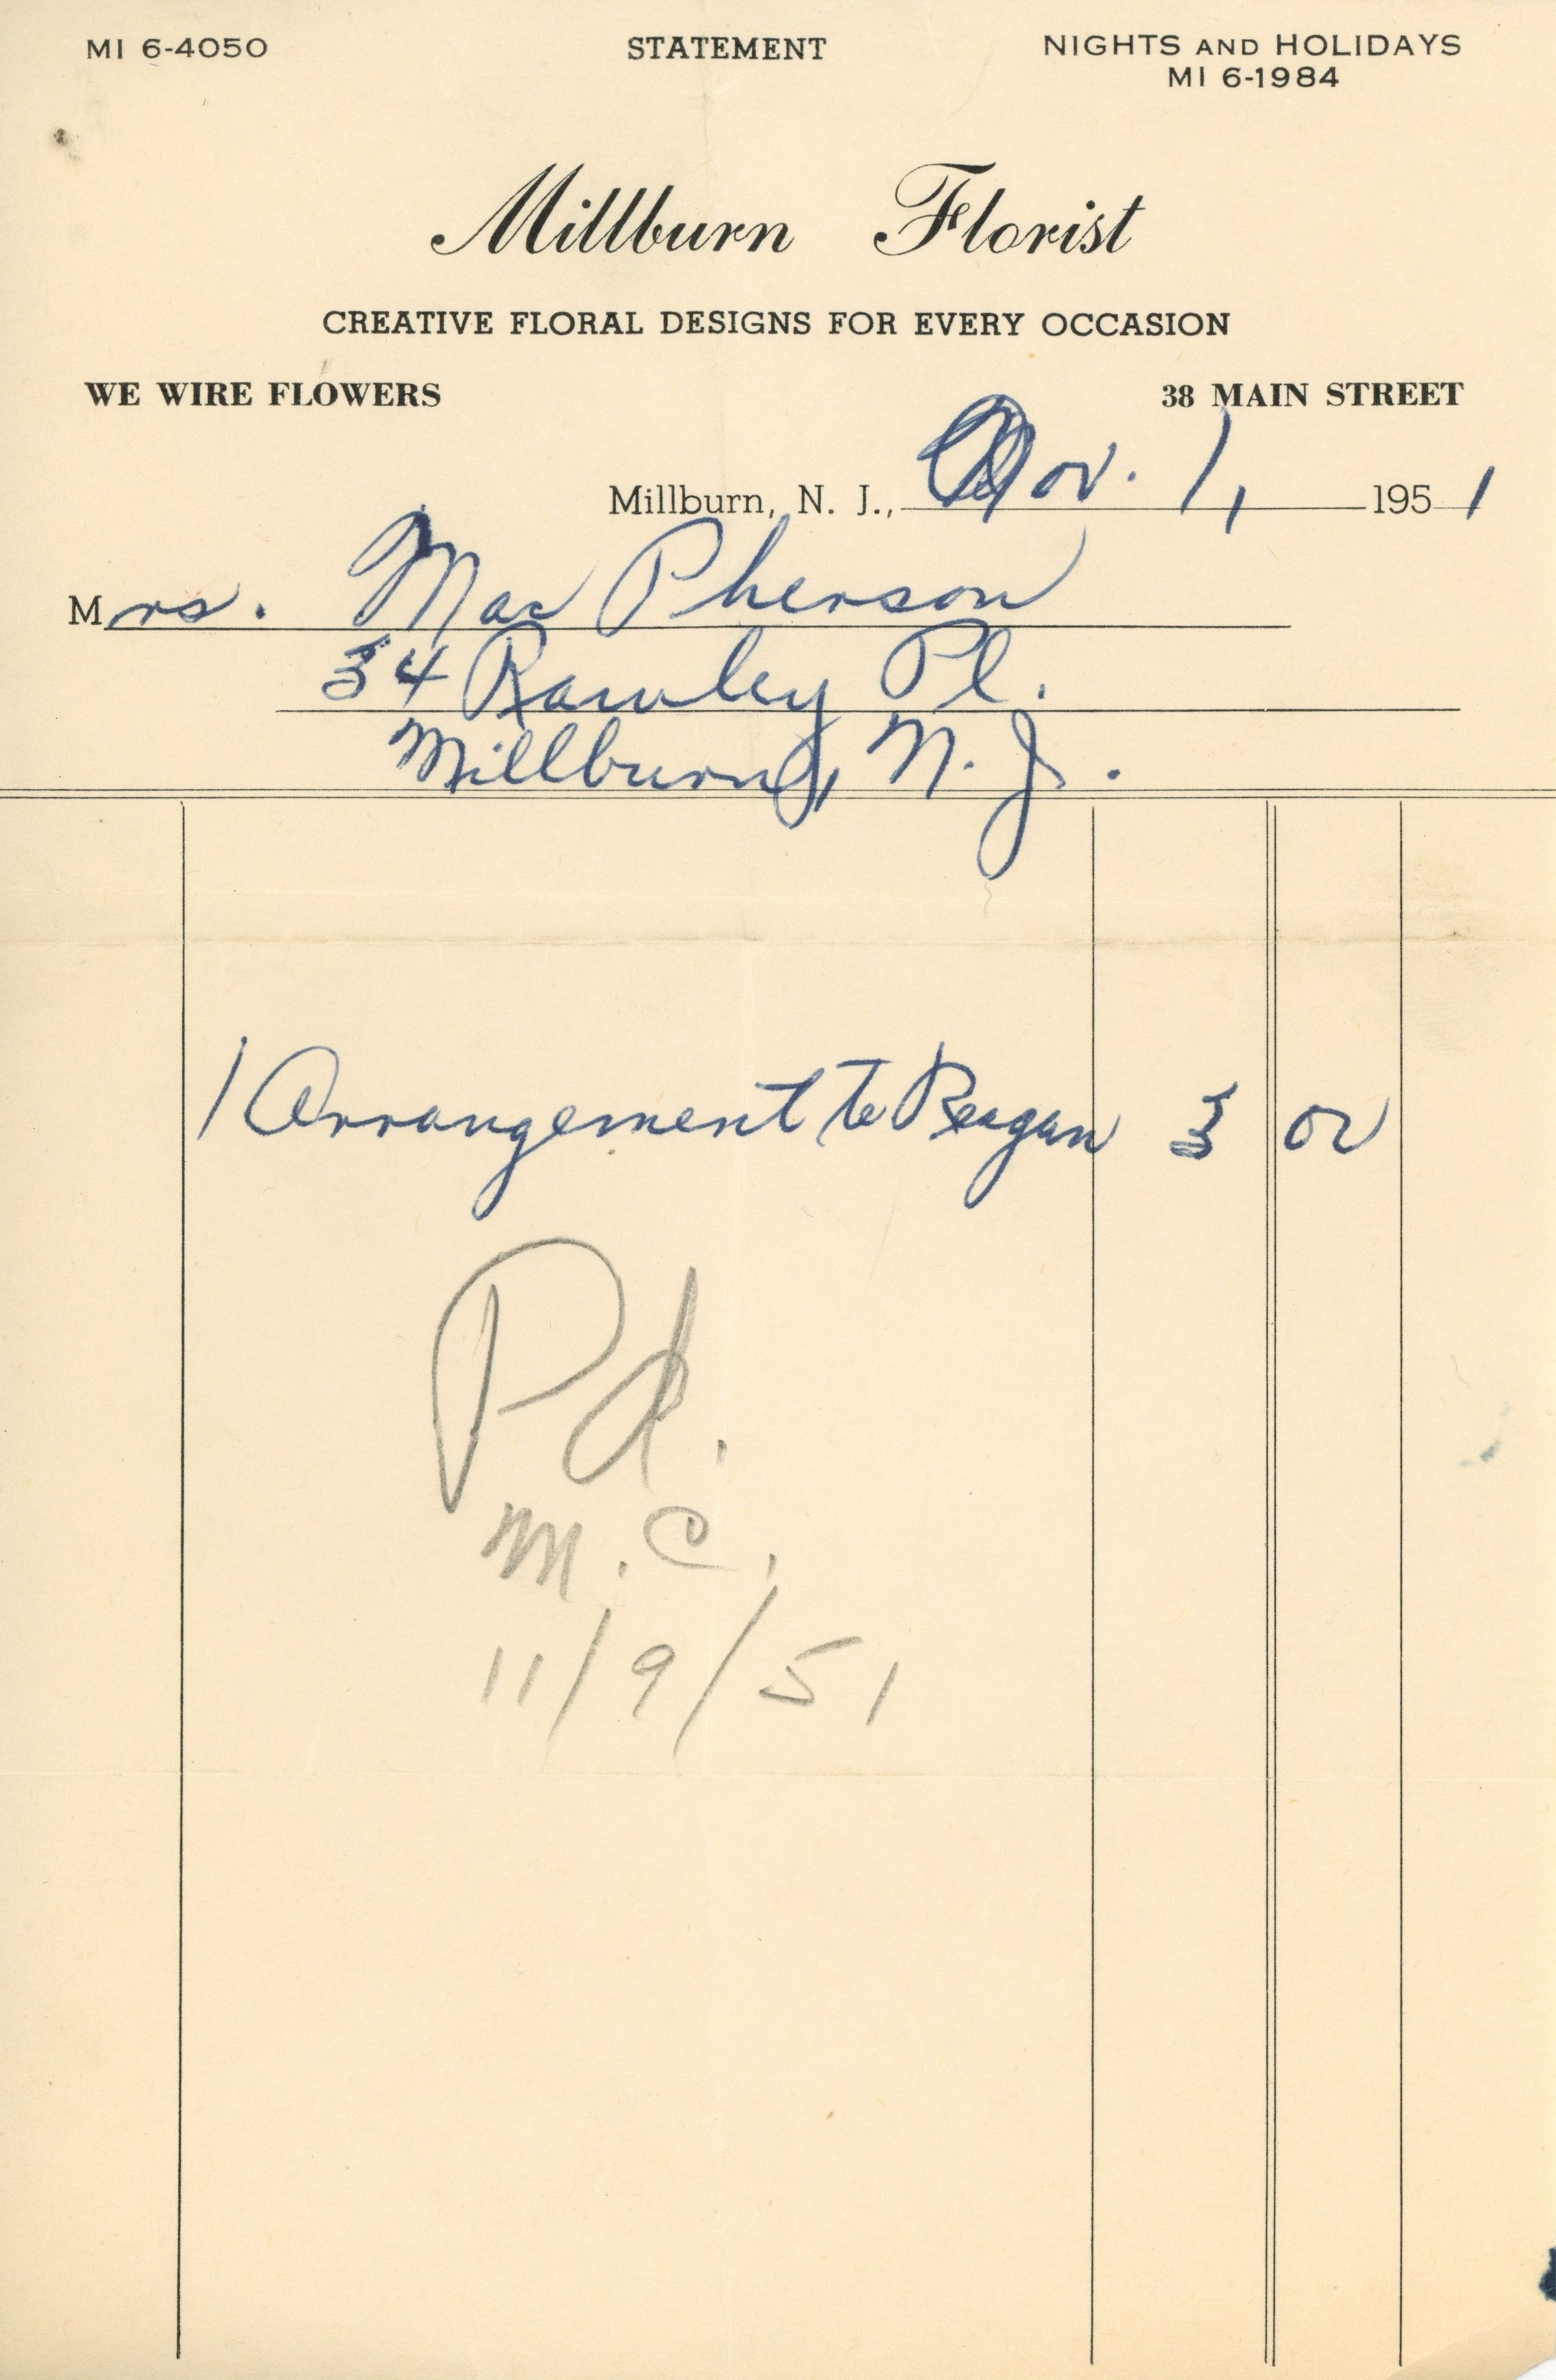 MI 6-4050 STATEMENT NIGHTS AND HOLIDAYS
MI 6-1984
Millburn Florist
CREATIVE FLORAL DESIGNS FOR EVERY OCCASION
WE WIRE FLOWERS 38 MAIN STREET
Millburn, N. J., Nov. 1, 1951
Mrs. Mac Pherson
34 Rawley Pl.
Millburn, N. J.
1 Arrangement to Reagan 3 00
Pd.
M.C.
11/9/51